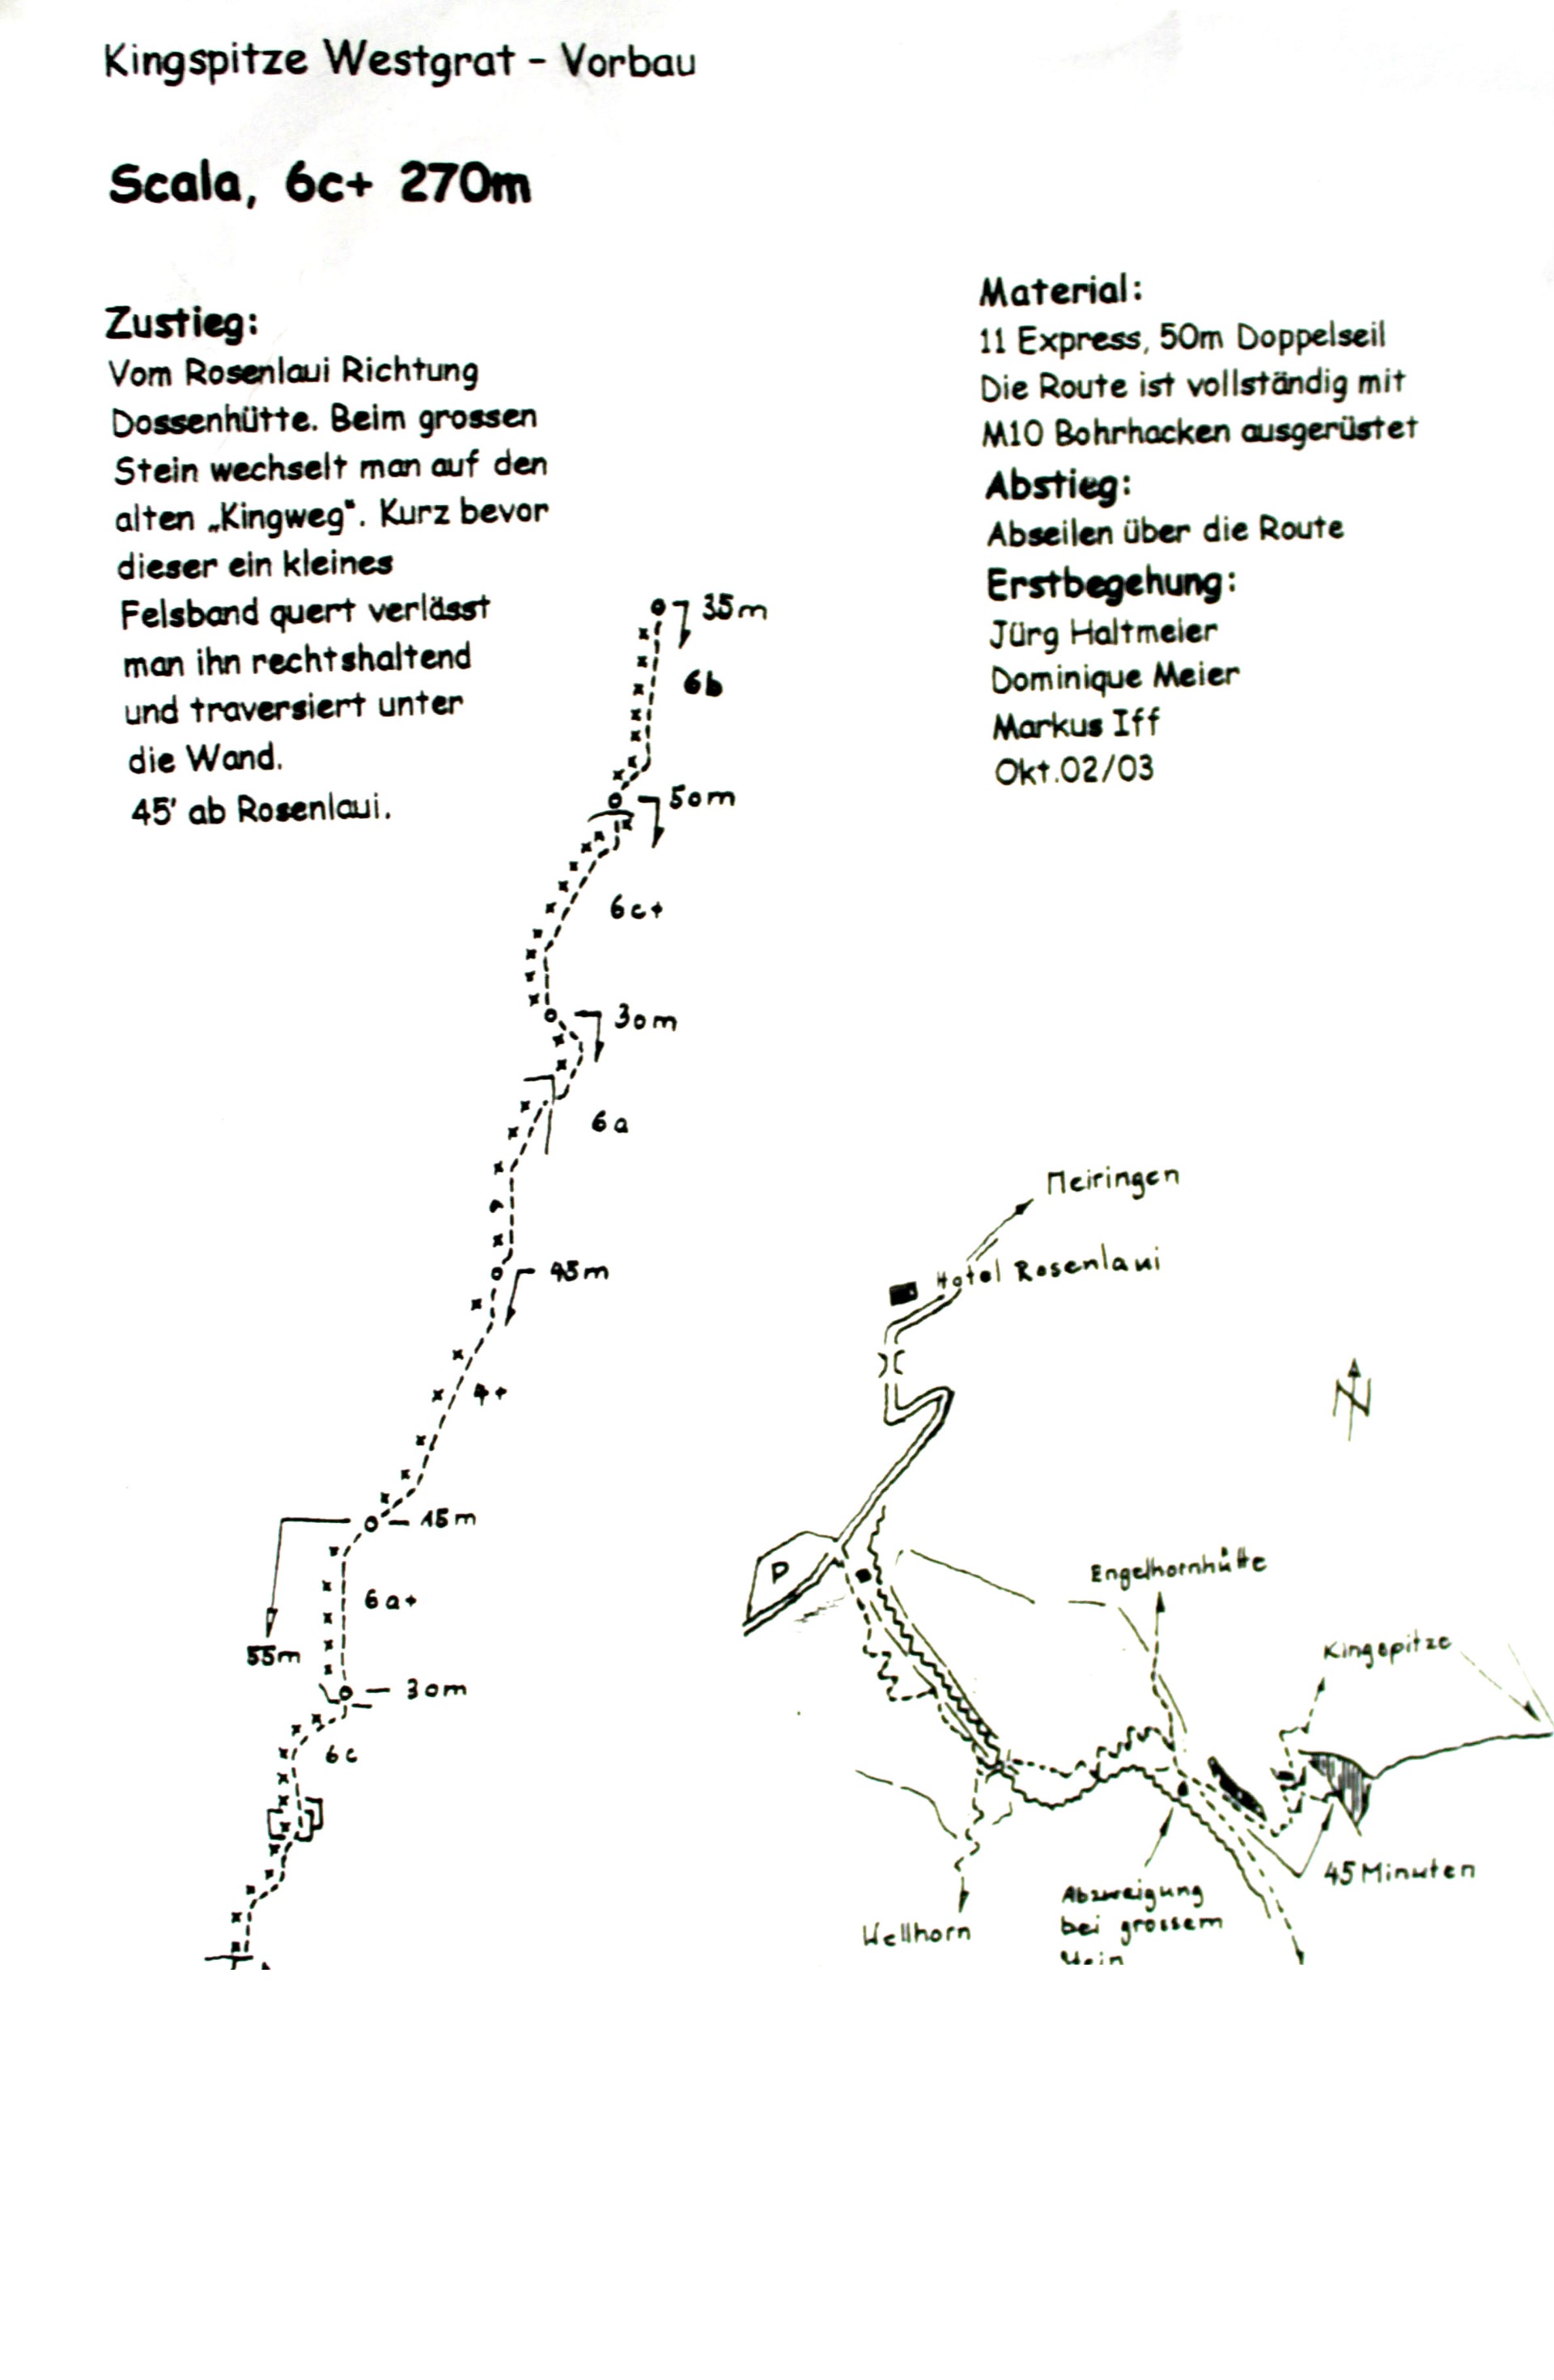 Kingspitze Westgrat - Vorbau
Scala, 6c+ 270m
Zustieg:
Vom Rosenlaui Richtung
Dossenhütte. Beim grossen
Stein wechselt man auf den
alten „Kingweg“. Kurz bevor
dieser ein kleines
Felsband quert verlässt
man ihn rechtshaltend
und traversiert unter
die Wand.
45' ab Rosenlaui.
Material:
11 Express, 50m Doppelseil
Die Route ist vollständig mit
M10 Bohrhacken ausgerüstet
Abstieg:
Abseilen über die Route
Erstbegehung:
Jürg Haltmeier
Dominique Meier
Markus Iff
Okt.02/03
35m
6b
50m
6c+
30m
6a
45m
4+
15m
6a+
55m
30m
6c
Meiringen
Hotel Rosenlaui
N
P
Engelhornhütte
Kingspitze
45 Minuten
Abzweigung
bei grossem
Wellhorn